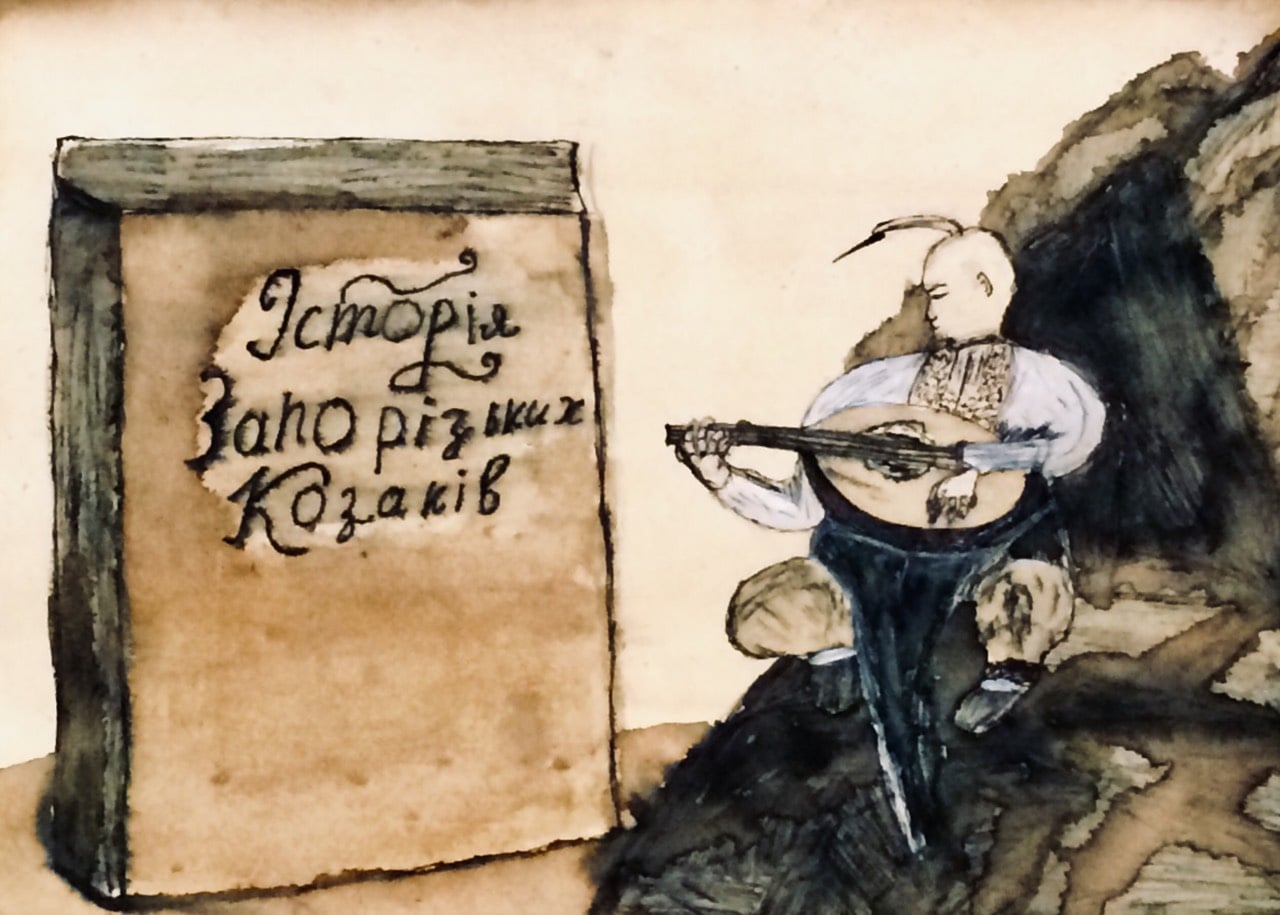 Історія
Запорізьких
Козаків